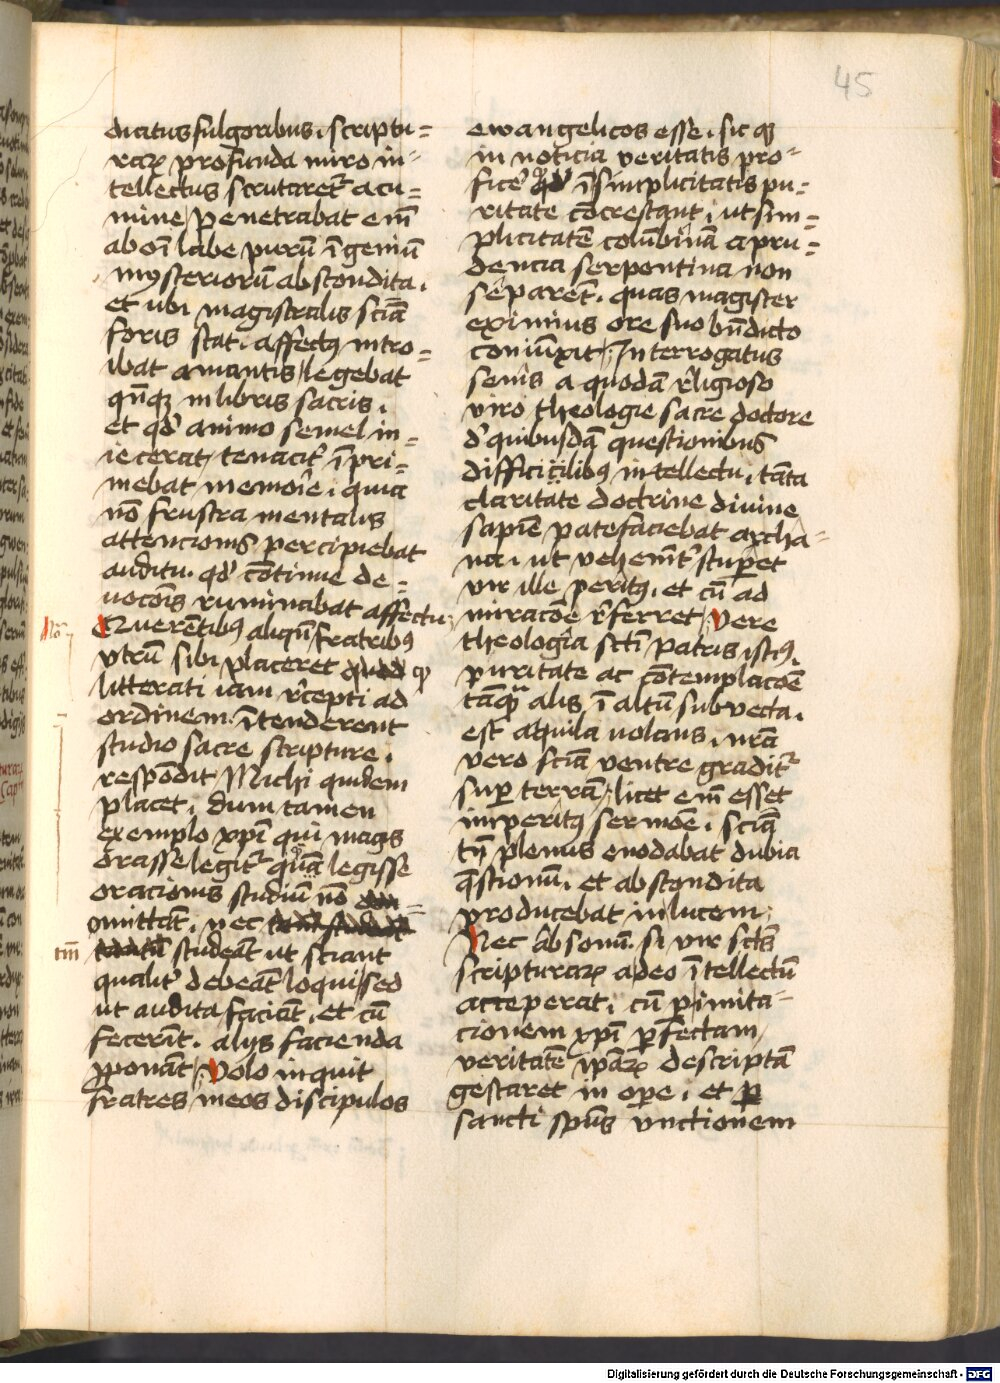 45
dicatus fulgoribus, scriptu=
raꝝ profunda miro in-
tellectus scrutaret᷑ acu=
mine, penetrabat em̅
ab oı̅ labe purū ı̅geniū
mysteriorū abscondita,
et ubi magistralis scı̅a
foris stat, affectꝰ intro=
ibat amantis, legebat
qn̅qꝫ in libris sacris,
et qd' animo semel in=
iecerat, tenacit᷑ ı̅pri=
mebat memorie, quia
nō frustra mentalis
attencionis percipiebat
auditu, qd' cōtinue de=
uocōis ruminabat affectu.
Querentibꝰ aliqn̅ fratribꝰ
vtrū sibi placeret ꝙ
litterati iam r̕cepti ad
ordinem, ı̅tenderent
studio sacre scripture,
respōdit Michi quidem
placet, dum tamen
exemplo xp̅i qui magis
orasse legit᷑ quā legisse
oracionis studiū nō
omittāt, nec
tm̅
studeāt ut sciant
qualit᷑ debeāt loqui, sed
ut audita faciāt, et cū
fecerīt, alijs facienda
ꝓponāt, volo inquit
fratres meos discipulos
ewangelicos esse, sic qꝫ
in noticia veritatis pro-
fice᷑ qd' ı̅ simplicitatis pu=
ritate cōcrescant, ut sim=
plicitatē colūbinā a pru=
dencia serpentina non
separēt, quas magister
eximius ore suo bn̅dicto
coniūxit, Interrogatus
senis a quodā r̕ligioso
viro theologie sacre doctore
d' quibusdā questionibus
difficilibꝰ intellectu, tāta
claritate doctrine diuine
sapiē patefaciebat archa-
na, ut vehemt᷑ stuꝑet
vir ille peritꝰ, et cū ad
miracōe r̕ferret, Vere
theologia sc̅ti patris istiꝰ,
puritate ac cōtemplacōe
tāqꝫ alis ı̅ altū subvecta,
est aquila uolans, nr̅a
vero scı̅a ventre gradit᷑
suꝑ terrā, licet em̅ esset
imperitꝰ sermōe, scı̅a
tn̅ plenus enodabat dubia
q̅stionū, et abscondita
producebat in lucem,
Nec absonū si vir sc̅tꝰ
scripturaꝝ a deo ı̅tellectū
acceperat, cū ꝑ imita-
cionem xp̅i ꝑfectam,
veritatē ip̅aꝝ descriptā
gestaret in oꝑe, et ꝑ
sancti sp̅us vnctionem
Digitalisierung gefördert durch die Deutsche Forschungsgemeinschaft - DFG